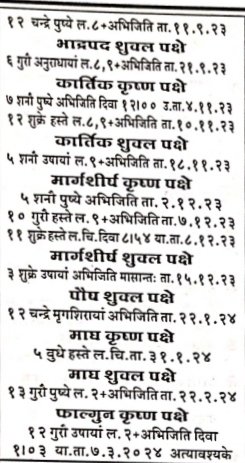 १२ चन्द्रे पुष्ये ल.८+अभिजिति ता.११.९.२३
भाद्रपद शुक्ल पक्षे
६ गुरौ अनुराधायां ल.८,९+अभिजिति ता.२१.९.२३
कार्तिक कृष्ण पक्षे
७ शनौ पुष्ये अभिजिति दिवा १२।०० उ.ता.४.११.२३
१२ शुक्रे हस्ते ल.८,९+अभिजिति ता.१०.११.२३
कार्तिक शुक्ल पक्षे
५ शनौ उषायां ल.९+अभिजिति ता.१८.११.२३
मार्गशीर्ष कृष्ण पक्षे
५ शनौ पुष्ये अभिजिति ता.२.१२.२३
१० गुरौ हस्ते ल.९+अभिजिति ता.७.१२.२३
११ शुक्रे हस्ते ल.चि.दिवा ८।५४ या.ता.८.१२.२३
मार्गशीर्ष शुक्ल पक्षे
३ शुक्रे उषायां अभिजिति मासान्तः ता.१५.१२.२३
पौष शुक्ल पक्षे
१२ चन्द्रे मृगशिरायां अभिजिति ता.२२.१.२४
माघ कृष्ण पक्षे
५ वुधे हस्ते ल.चि.ता.३१.१.२४
माघ शुक्ल पक्षे
१३ गुरौ पुष्ये ल.२+अभिजिति ता.२२.२.२४
फाल्गुन कृष्ण पक्षे
१२ गुरौ उषायां ल.२+अभिजिति दिवा
१।०३ या.ता.७.३.२०२४ अत्यावश्यके